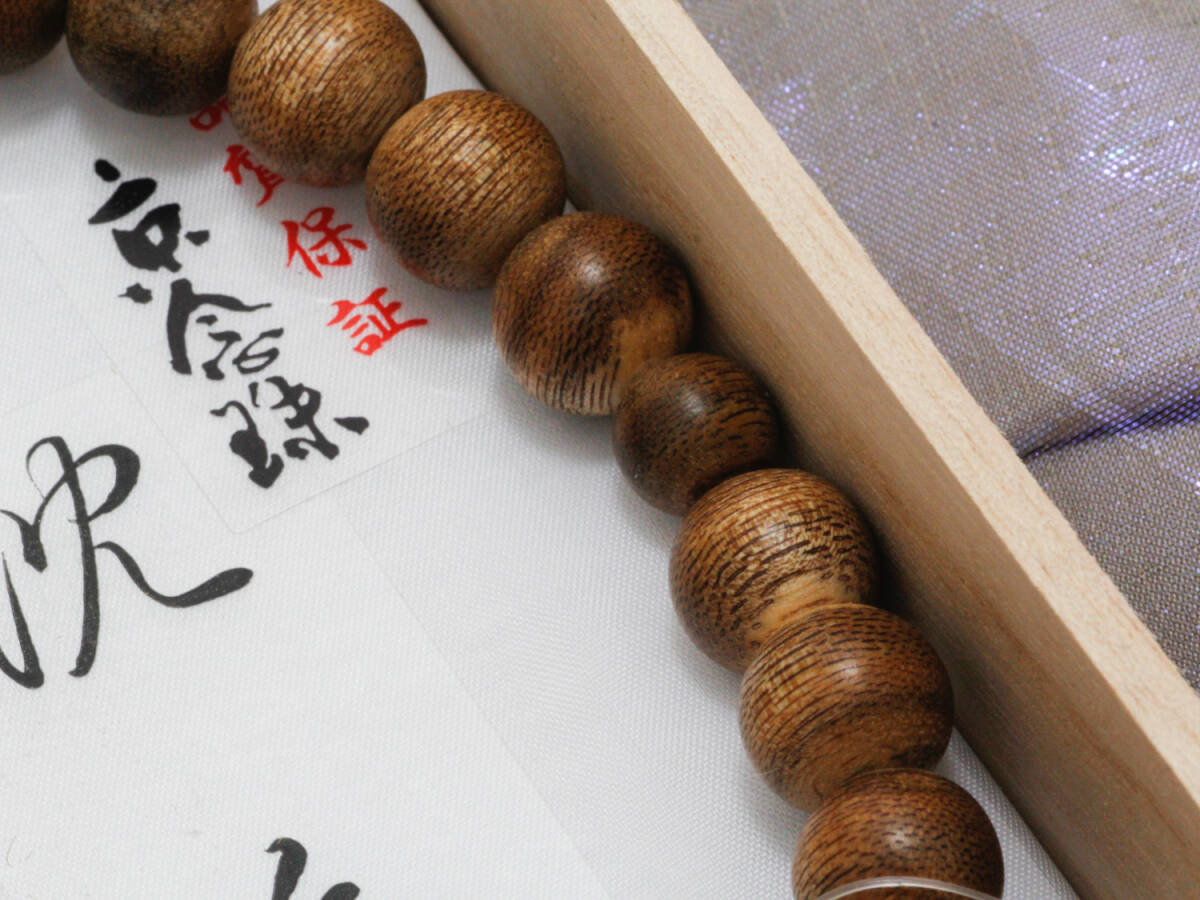 質保証
京念珠
沈